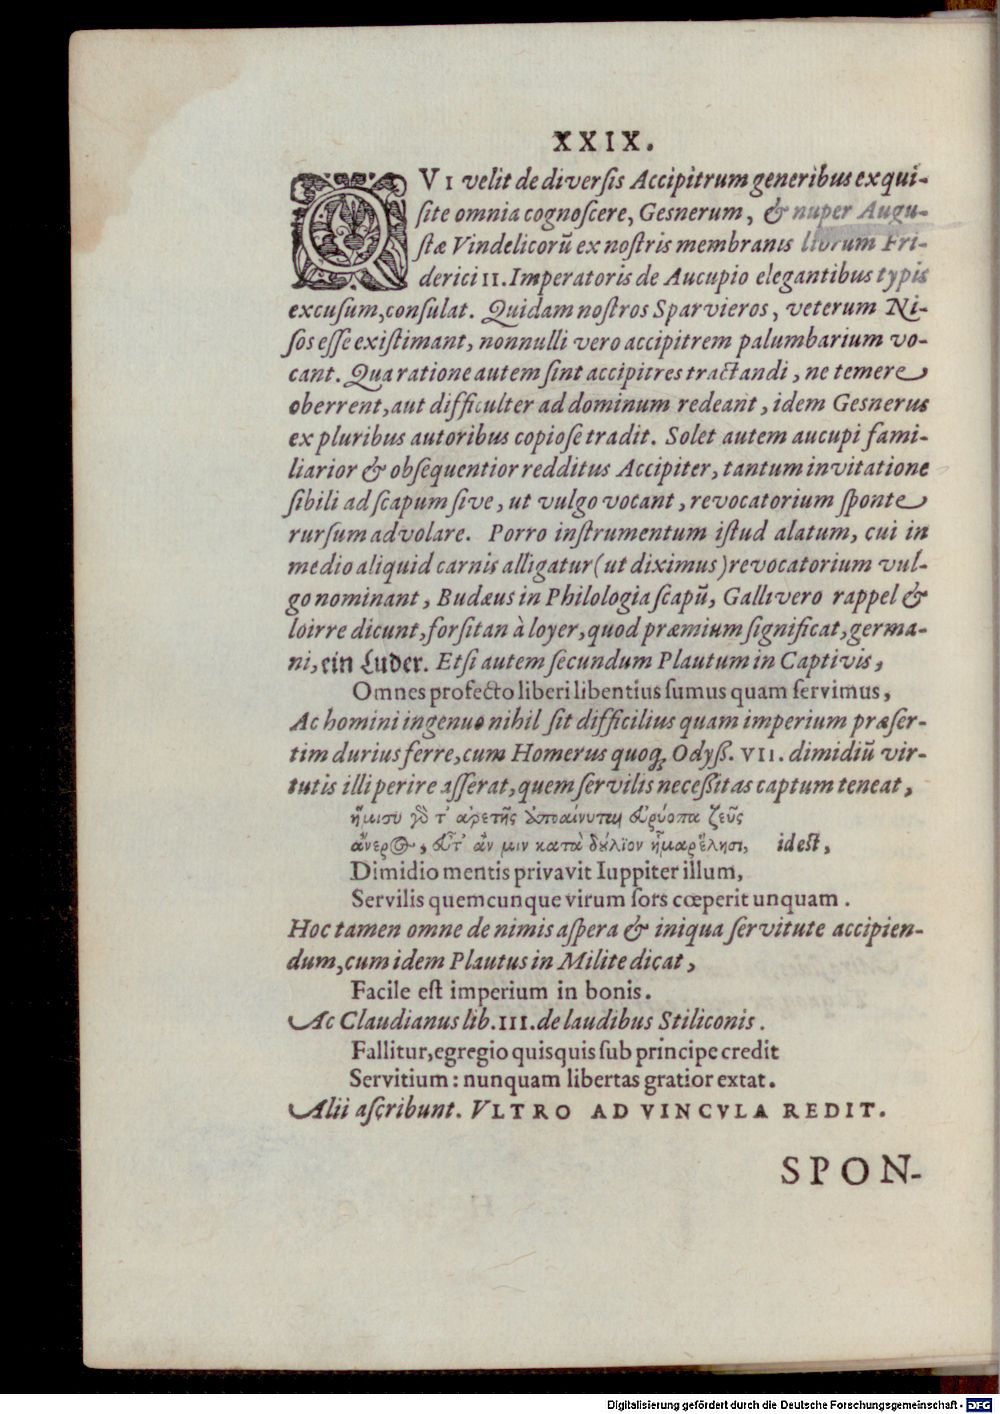 XXIX.
QVI velit de diversis Accipitrum generibus exqui-
site omnia cognoscere, Gesnerum, & nuper Augu-
stæ Vindelicorũ ex nostris membranis librum Fri-
derici II. Imperatoris de Aucupio elegantibus typis
excusum, consulat. Quidam nostros Sparvieros, veterum Ni-
sos esse existimant, nonnulli vero accipitrem palumbarium vo-
cant. Qua ratione autem sint accipitres tractandi, ne temere
oberrent, aut difficulter ad dominum redeant, idem Gesnerus
ex pluribus autoribus copiose tradit. Solet autem aucupi fami-
liarior & obsequentior redditus Accipiter, tantum invitatione
sibili ad scapum sive, ut vulgo vocant, revocatorium sponte
rursum advolare. Porro instrumentum istud alatum, cui in
medio aliquid carnis alligatur (ut diximus) revocatorium vul-
go nominant, Budæus in Philologia scapũ, Galli vero rappel &
loirre dicunt, forsitan à loyer, quod præmium significat, germa-
ni, ein Luder. Etsi autem secundum Plautum in Captivis,
Omnes profecto liberi libentius sumus quam servimus,
Ac homini ingenuo nihil sit difficilius quam imperium præser-
tim durius ferre, cum Homerus quoq; Odyß. VII. dimidiũ vir-
tutis illi perire asserat, quem servilis neceßitas captum teneat,
ἥμισυ γὸ τ' ἀρετῆς ἀποαίνυται εὐρύοπα ζεῦς
ἄνερος, εὖτ' ἄν μιν κατὰ δούλϊον ἦμαρ ἕλησι, id est,
Dimidio mentis privavit Iuppiter illum,
Servilis quemcunque virum sors cœperit unquam.
Hoc tamen omne de nimis aspera & iniqua servitute accipien-
dum, cum idem Plautus in Milite dicat,
Facile est imperium in bonis.
Ac Claudianus lib. III. de laudibus Stiliconis.
Fallitur, egregio quisquis sub principe credit
Servitium: nunquam libertas gratior extat.
Alii ascribunt. VLTRO AD VINCVLA REDIT.
SPON-
Digitalisierung gefördert durch die Deutsche Forschungsgemeinschaft - DFG